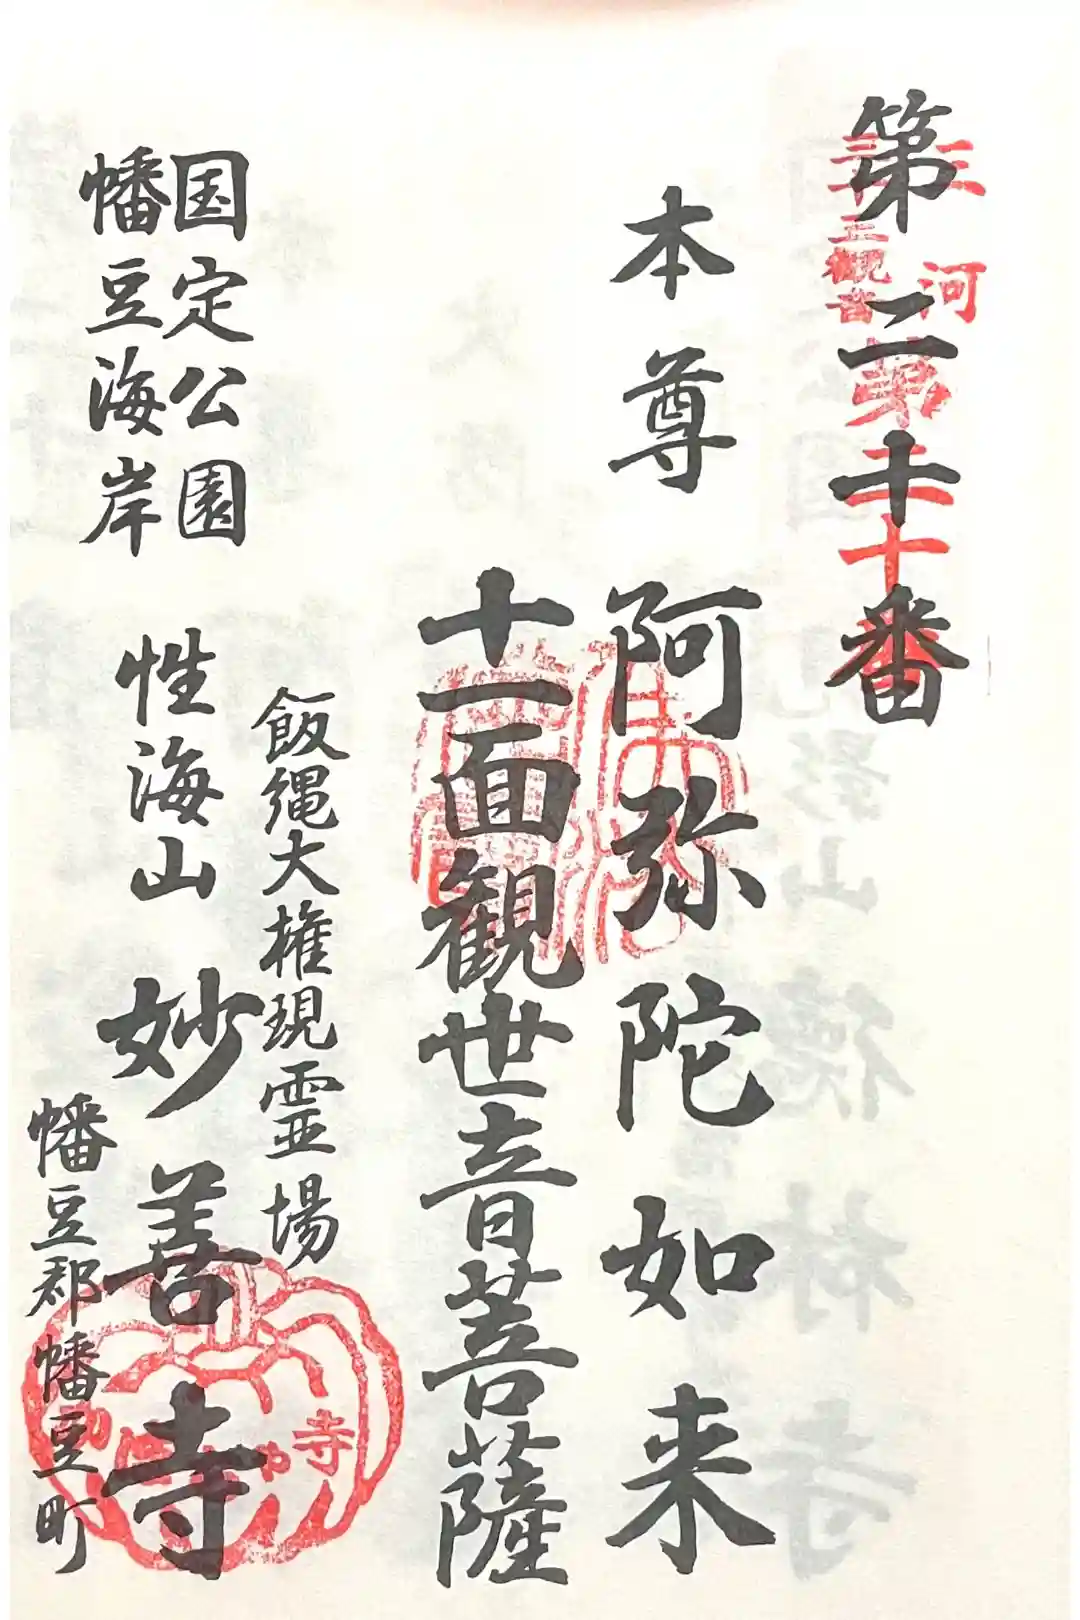 第二十番
三河
三十三観音
第二十番
本尊 阿弥陀如来
十一面観世音菩薩
飯縄大権現霊場
国定公園
幡豆海岸
性海山 妙善寺
寺
幡豆郡幡豆町